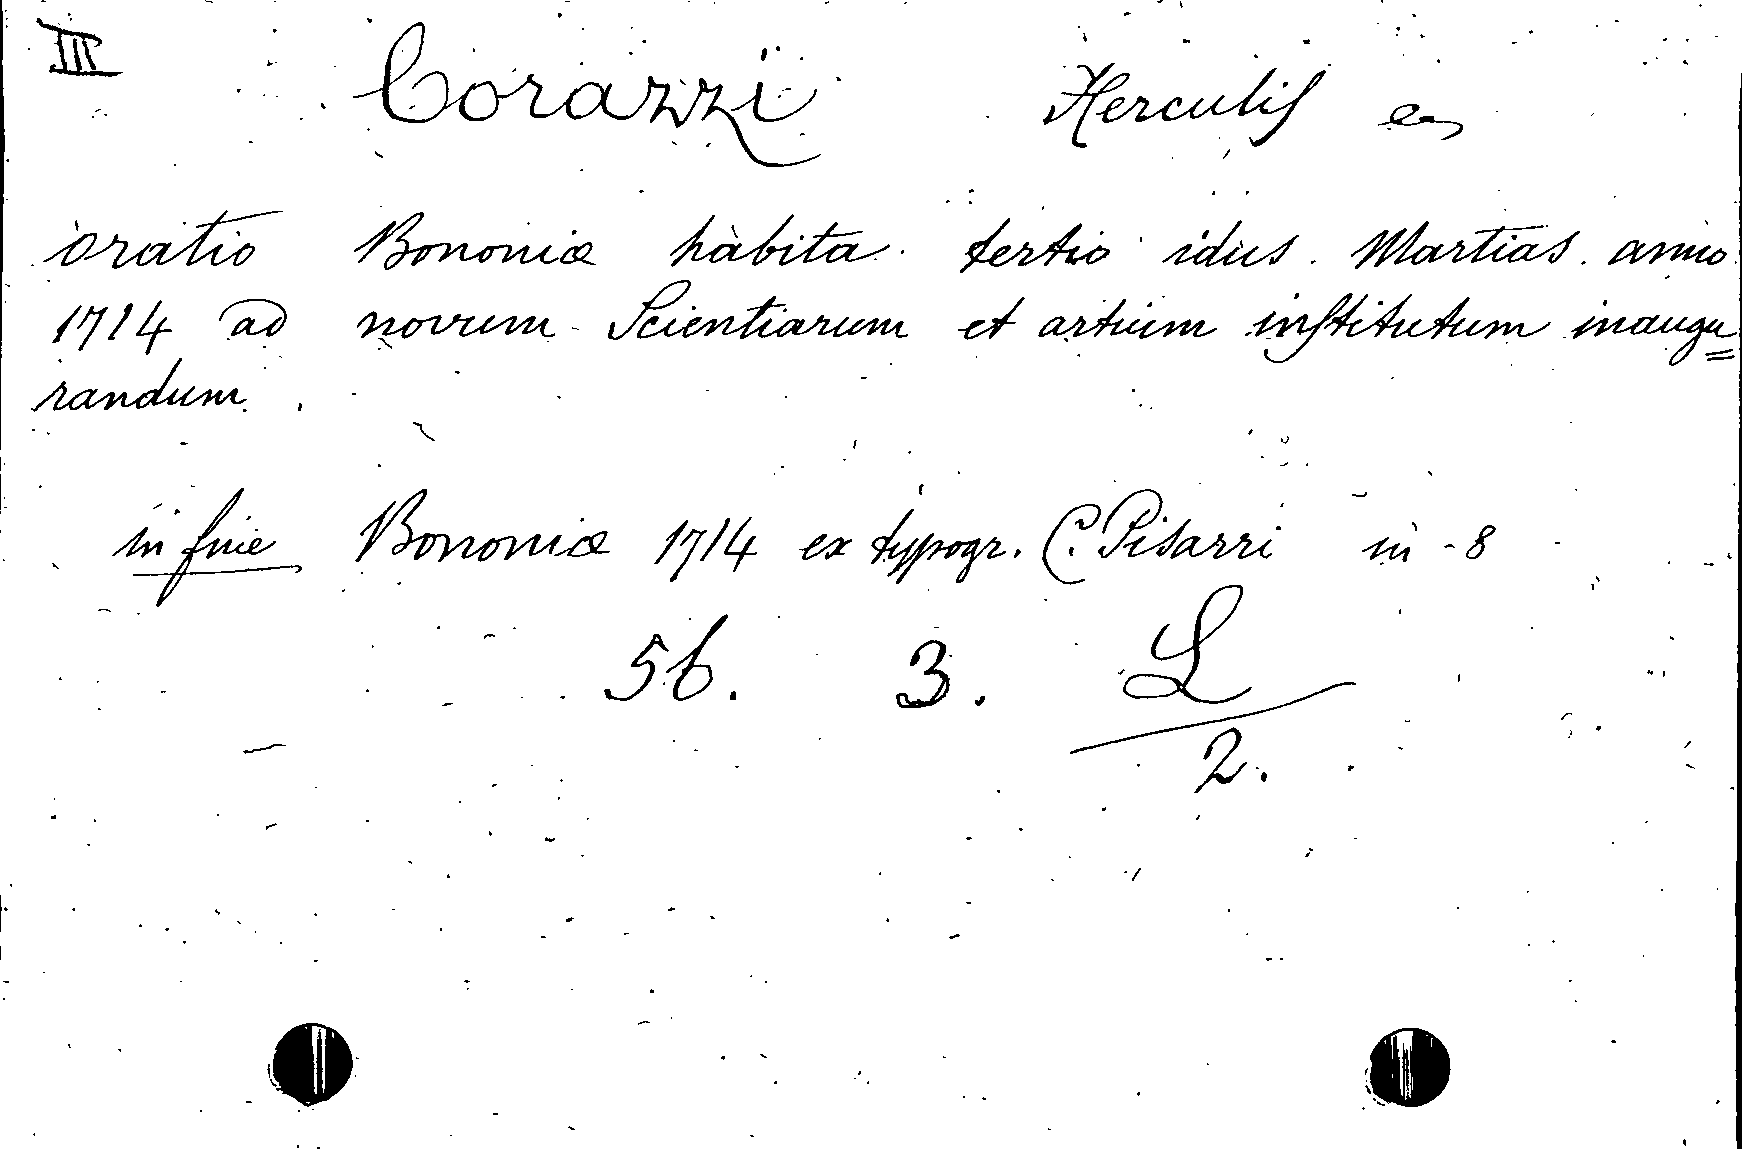 III Corazzi Herculis
oratio Bononiæ habita tertio idus Martias anno
1714 ad novum Scientiarum et artium institutum inaugu=
randum.
in fine Bononiæ 1714 ex typogr. C. Pisarri in-8
56. 3. L
2.